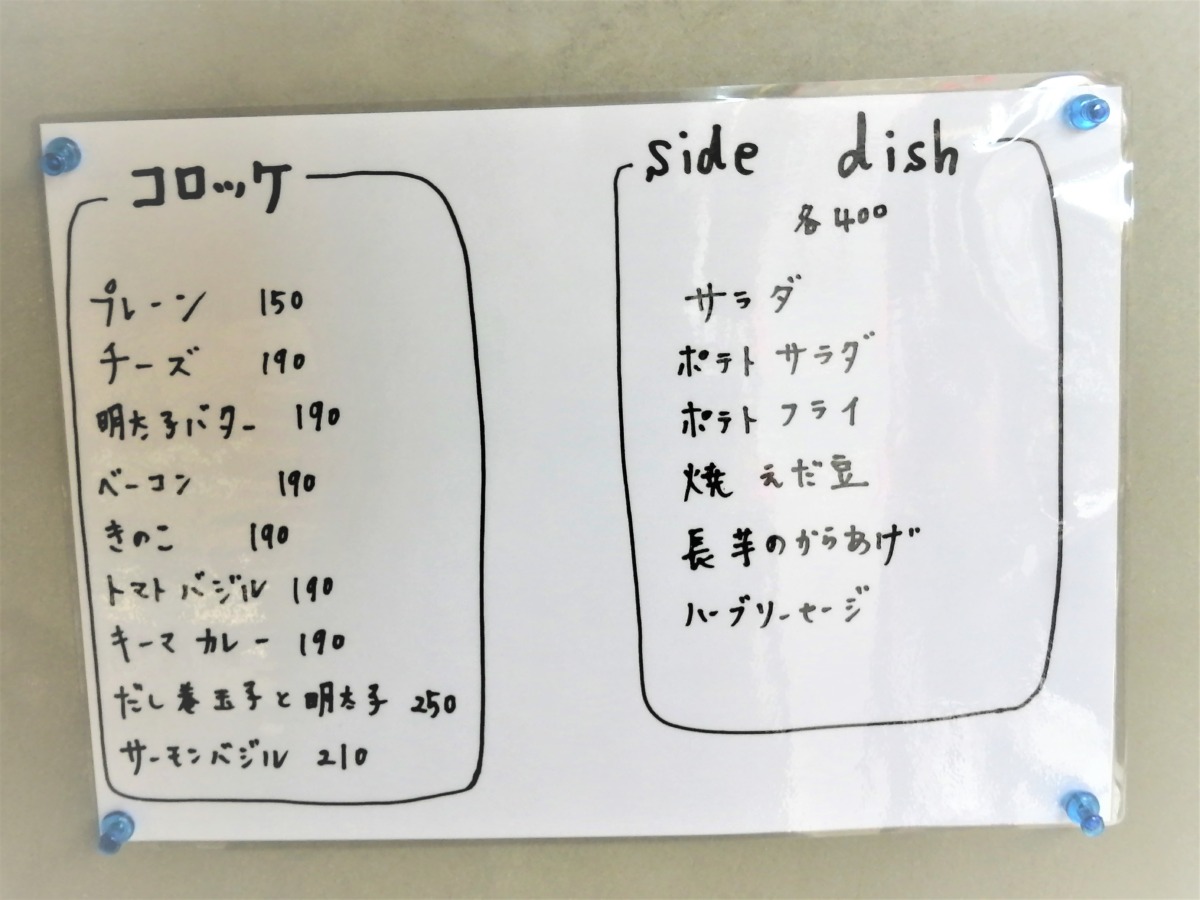 コロッケ
プレーン 150
チーズ 190
明太子バター 190
ベーコン 190
きのこ 190
トマトバジル 190
キーマカレー 190
だし巻玉子と明太子 250
サーモンバジル 210
side dish
各400
サラダ
ポテトサラダ
ポテトフライ
焼えだ豆
長芋のからあげ
ハーブソーセージ